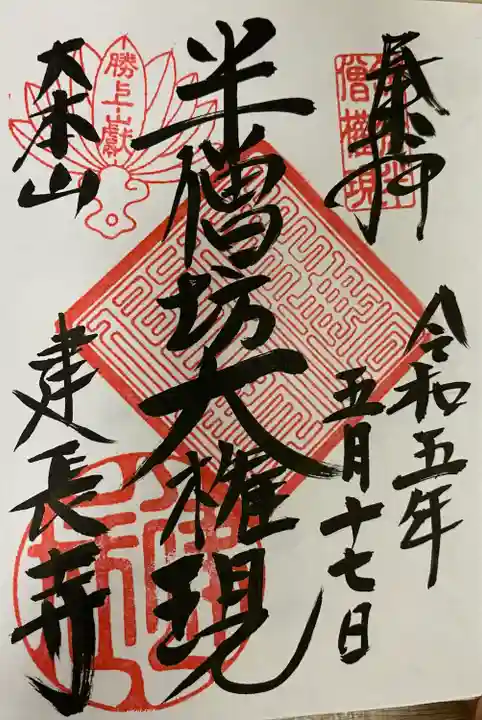 奉拝
令和五年
五月十七日
半僧坊大権現
大本山
建長寺
勝上山獻
僧権現